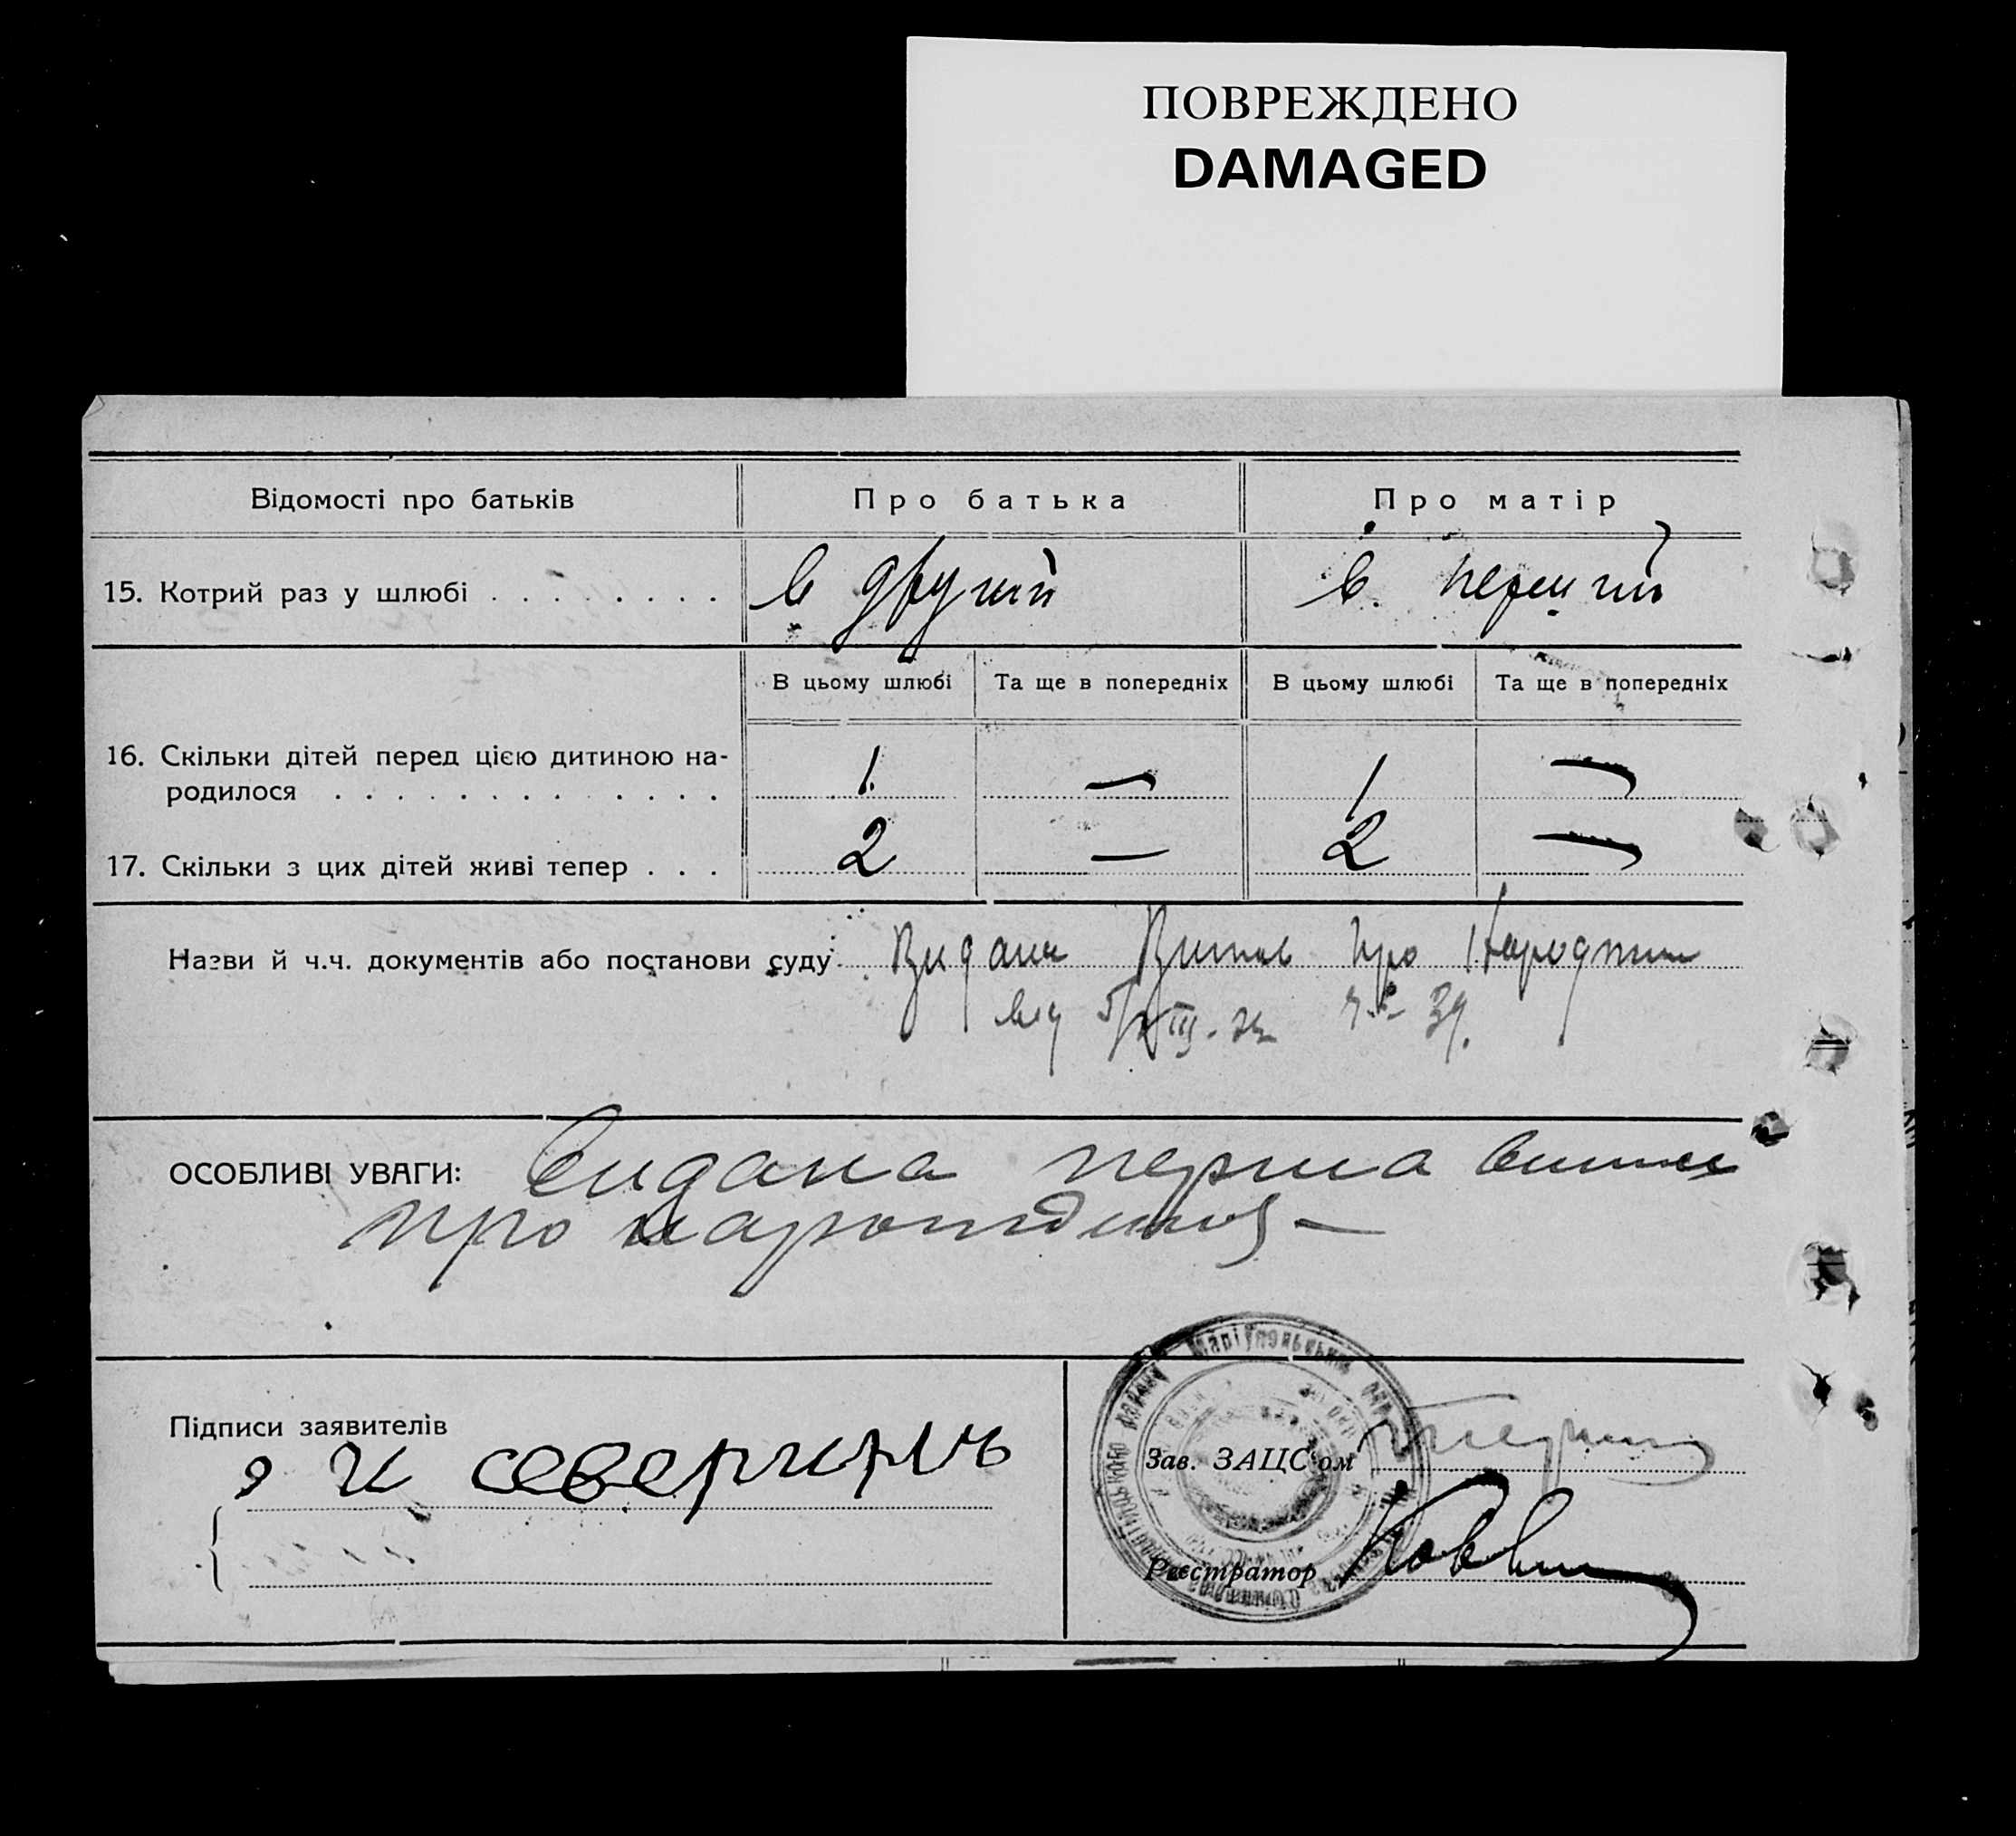 ПОВРЕЖДЕНО
DAMAGED
Відомості про батьків Про батька Про матір
15. Котрий раз у шлюбі . . . . . . . . в другий в перший
В цьому шлюбі Та ще в попередніх В цьому шлюбі Та ще в попередніх
16. Скільки дітей перед цією дитиною на-
родилося . . . . . . . . . . . . . 1 — 1 —
17. Скільки з цих дітей живі тепер . . . 2 — 2 —
Назви й ч.ч. документів або постанови суду Видана про
від 39.
ОСОБЛИВІ УВАГИ: Видана перша
про
Підписи заявителів
Маріупольської
Зав. ЗАЦС'ом
Реєстратор